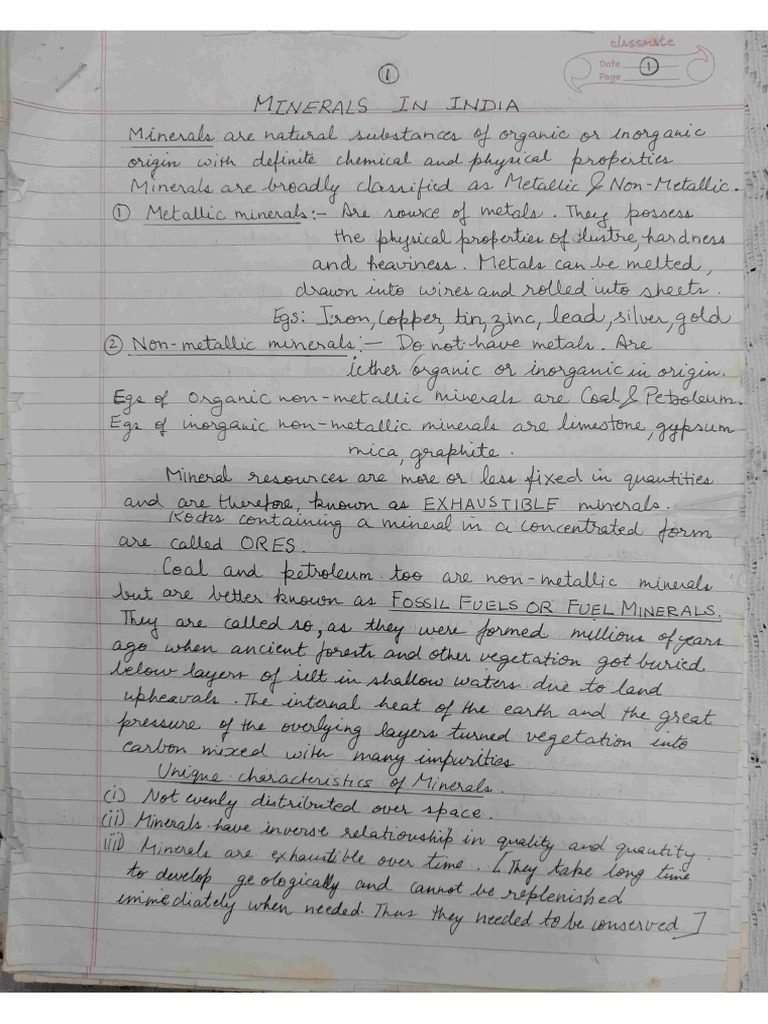 classmate
Date
Page
①
①
MINERALS IN INDIA
Minerals are natural substances of organic or inorganic
origin with definite chemical and physical properties
Minerals are broadly classified as Metallic & Non-Metallic.
① Metallic minerals:- Are source of metals. They possess
the physical properties of lustre, hardness
and heaviness. Metals can be melted,
drawn into wires and rolled into sheets.
Egs: Iron, copper, tin, zinc, lead, silver, gold
② Non-metallic minerals:- Do not have metals. Are
either organic or inorganic in origin.
Egs of organic non-metallic minerals are Coal & Petroleum.
Egs of inorganic non-metallic minerals are limestone, gypsum
mica, graphite.
Mineral resources are more or less fixed in quantities
and are therefore, known as EXHAUSTIBLE minerals.
Rocks containing a mineral in a concentrated form
are called ORES.
Coal and petroleum too are non-metallic minerals
but are better known as FOSSIL FUELS OR FUEL MINERALS.
They are called so, as they were formed millions of years
ago when ancient forests and other vegetation got buried
below layers of silt in shallow waters due to land
upheavals. The internal heat of the earth and the great
pressure of the overlying layers turned vegetation into
carbon mixed with many impurities
Unique characteristics of Minerals.
(i) Not evenly distributed over space.
(ii) Minerals have inverse relationship in quality and quantity.
iii) Minerals are exhaustible over time. [They take long time
to develop geologically and cannot be replenished
immediately when needed. Thus they needed to be conserved]